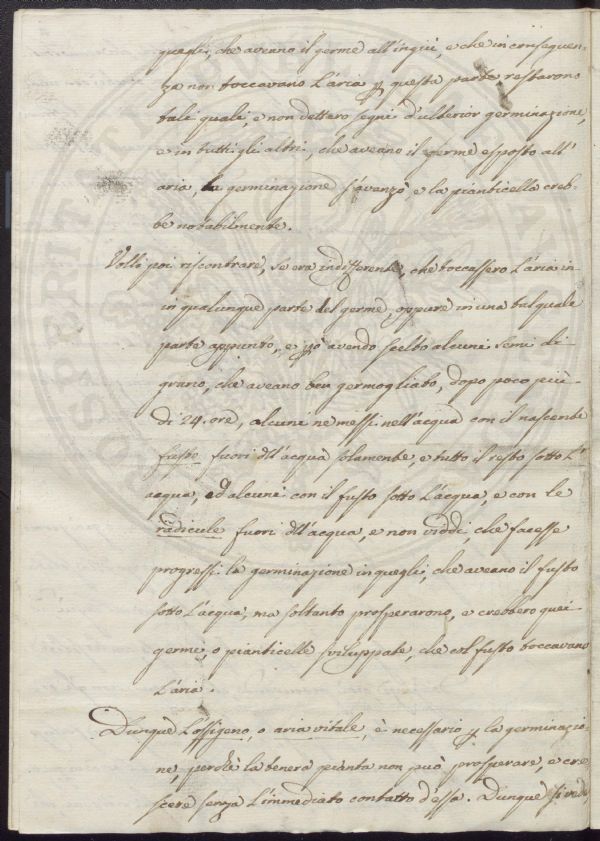 quegli, che aveano il germe all'ingiù, e che in conseguen-
za non toccavano l'aria p questa parte restarono
tali quali, e non dettero segni d'ulterior germinazione,
e in tutti gli altri, che aveano il germe esposto all'
aria, la germinazione s'avanzò, e la pianticella creb-
be notabilmente.
Volli poi riscontrare, se era indifferente, che toccassero l'aria in
in qualunque parte del germe, oppure in una tal quale
parte appunto, e pò avendo scelto alcuni semi di
grano, che aveano ben germogliato, dopo poco più
di 24. ore, alcuni ne messi nell'acqua con il nascente
fusto fuori dll'acqua solamente, e tutto il resto sotto l'
acqua, ed alcuni con il fusto sotto l'acqua, e con le
radicule fuori dll'acqua, e non viddi, che facesse
progressi la germinazione in quegli, che aveano il fusto
sotto l'acqua, ma soltanto prosperarono, e crebbero quei
germi, o pianticelle sviluppate, che col fusto toccavano
l'aria.
Dunque l'ossigeno, o aria vitale, è necessario p la germinazio-
ne, perchè la tenera pianta non può prosperare, e cre
scere senza l'immediato contatto d'essa. Dunque si vede
PROSPERITATI